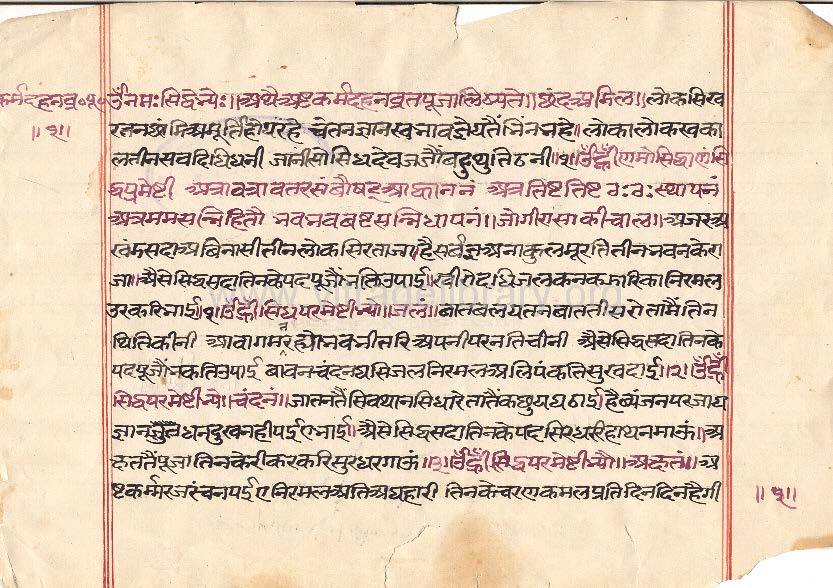 कर्मदहनव्र०पू० ॐनमःसिद्धेभ्येः॥अथैअष्टकर्मदहनव्रतपूजालिष्यते॥छंदअमिल॥लोकसिख
॥१॥ रतनछांमिअमूर्तिहोयरहे चेतनज्ञानस्वभावज्ञेयतैंभिंनभहे॥लोकालोकस्वका
लतीनसवदिधिधनी जानीसोसिधदेवजजौंवहुथुतिठनी॥१॥ॐह्रींणमोसिद्धाणंसि
द्धप्रमेष्टी अत्रावत्रावतरसंवौषद्आह्वाननं अत्रतिष्टतिष्टठःठःस्थापनं
अत्रममसन्निहितौ भवभवबष्टसन्निधापनं॥जोगीरासाकीचाल॥अजरअ
खंमसदाअबिनासीतीनलोकसिरताजा॥हैसर्वज्ञअनाकुलमूरतितीनभवनकेरा
जा॥अैसेसिद्धसदातिनकेपदपूजौंभक्तिउपाई॥षीरोदधिजलकनकभारिकानिरमल
उरकरिभाई॥१॥ॐह्रींसिधपरमेष्टीभ्यो॥जलं॥बातबलयतनबाततीसरोतामैंतिन
थितिकीनी आवागमनरह्योभवभीतरिअपनीपरनतिचीनी अैसेसिद्धसदातिनके
पदपूजौंभकतिउपाई बावनचंदनघसिजलनिरमलअलिपंकतिसुखदाई॥२॥ॐह्रीं
सिद्धपरमेष्टीभ्यो॥चंदनं॥जातनतैंसिवथानसिधारेतातैंकछुयघठाई॥हैब्यंजनपरजाय
ज्ञानजुतधनदुखनहीपईएभाई॥अैसेसिद्धसदातिनकेपदसिरधरिहाथनमाऊं॥अ
छततैंपूजातिनकेरीकरकरिसुरधरगाऊं॥३॥ॐह्रींसिद्धपरमेष्टीभ्यौ॥अछतं॥अ
ष्टकर्म्मरजरंचनपईएनिरमलअतिअघहारी तिनकेचरणकमलप्रतिदिनदिनहैगी
॥१॥
www.vitragelibrary.org